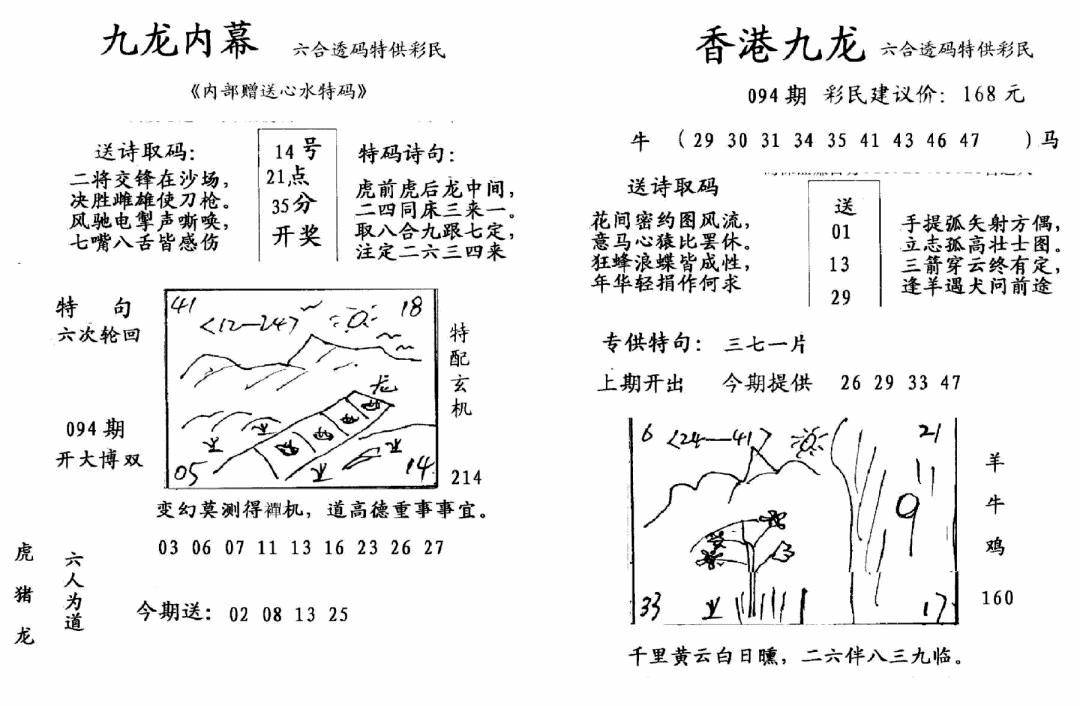 九龙内幕 六合透码特供彩民
《内部赠送心水特码》
送诗取码：
二将交锋在沙场，
决胜雌雄使刀枪。
风驰电掣声嘶唤，
七嘴八舌皆感伤
14号
21点
35分
开奖
特码诗句：
虎前虎后龙中间，
二四同床三来一。
取八合九跟七定，
注定二六三四来
特句
六次轮回
094期
开大博双
41
<12—24>
18
龙
05
14
特配玄机
214
变幻莫测得禅机，道高德重事事宜。
03 06 07 11 13 16 23 26 27
虎猪龙
六人为道
今期送：02 08 13 25
香港九龙 六合透码特供彩民
094期 彩民建议价：168元
牛（29 30 31 34 35 41 43 46 47 ）马
送诗取码
花间密约图风流，
意马心猿比罢休。
狂蜂浪蝶皆成性，
年华轻捐作何求
送
01
13
29
手提弧矢射方偶，
立志孤高壮士图。
三箭穿云终有定，
逢羊遇犬问前途
专供特句：三七一片
上期开出 今期提供 26 29 33 47
6
<24—41>
21
9
33
17
羊牛鸡
160
千里黄云白日曛，二六伴八三九临。